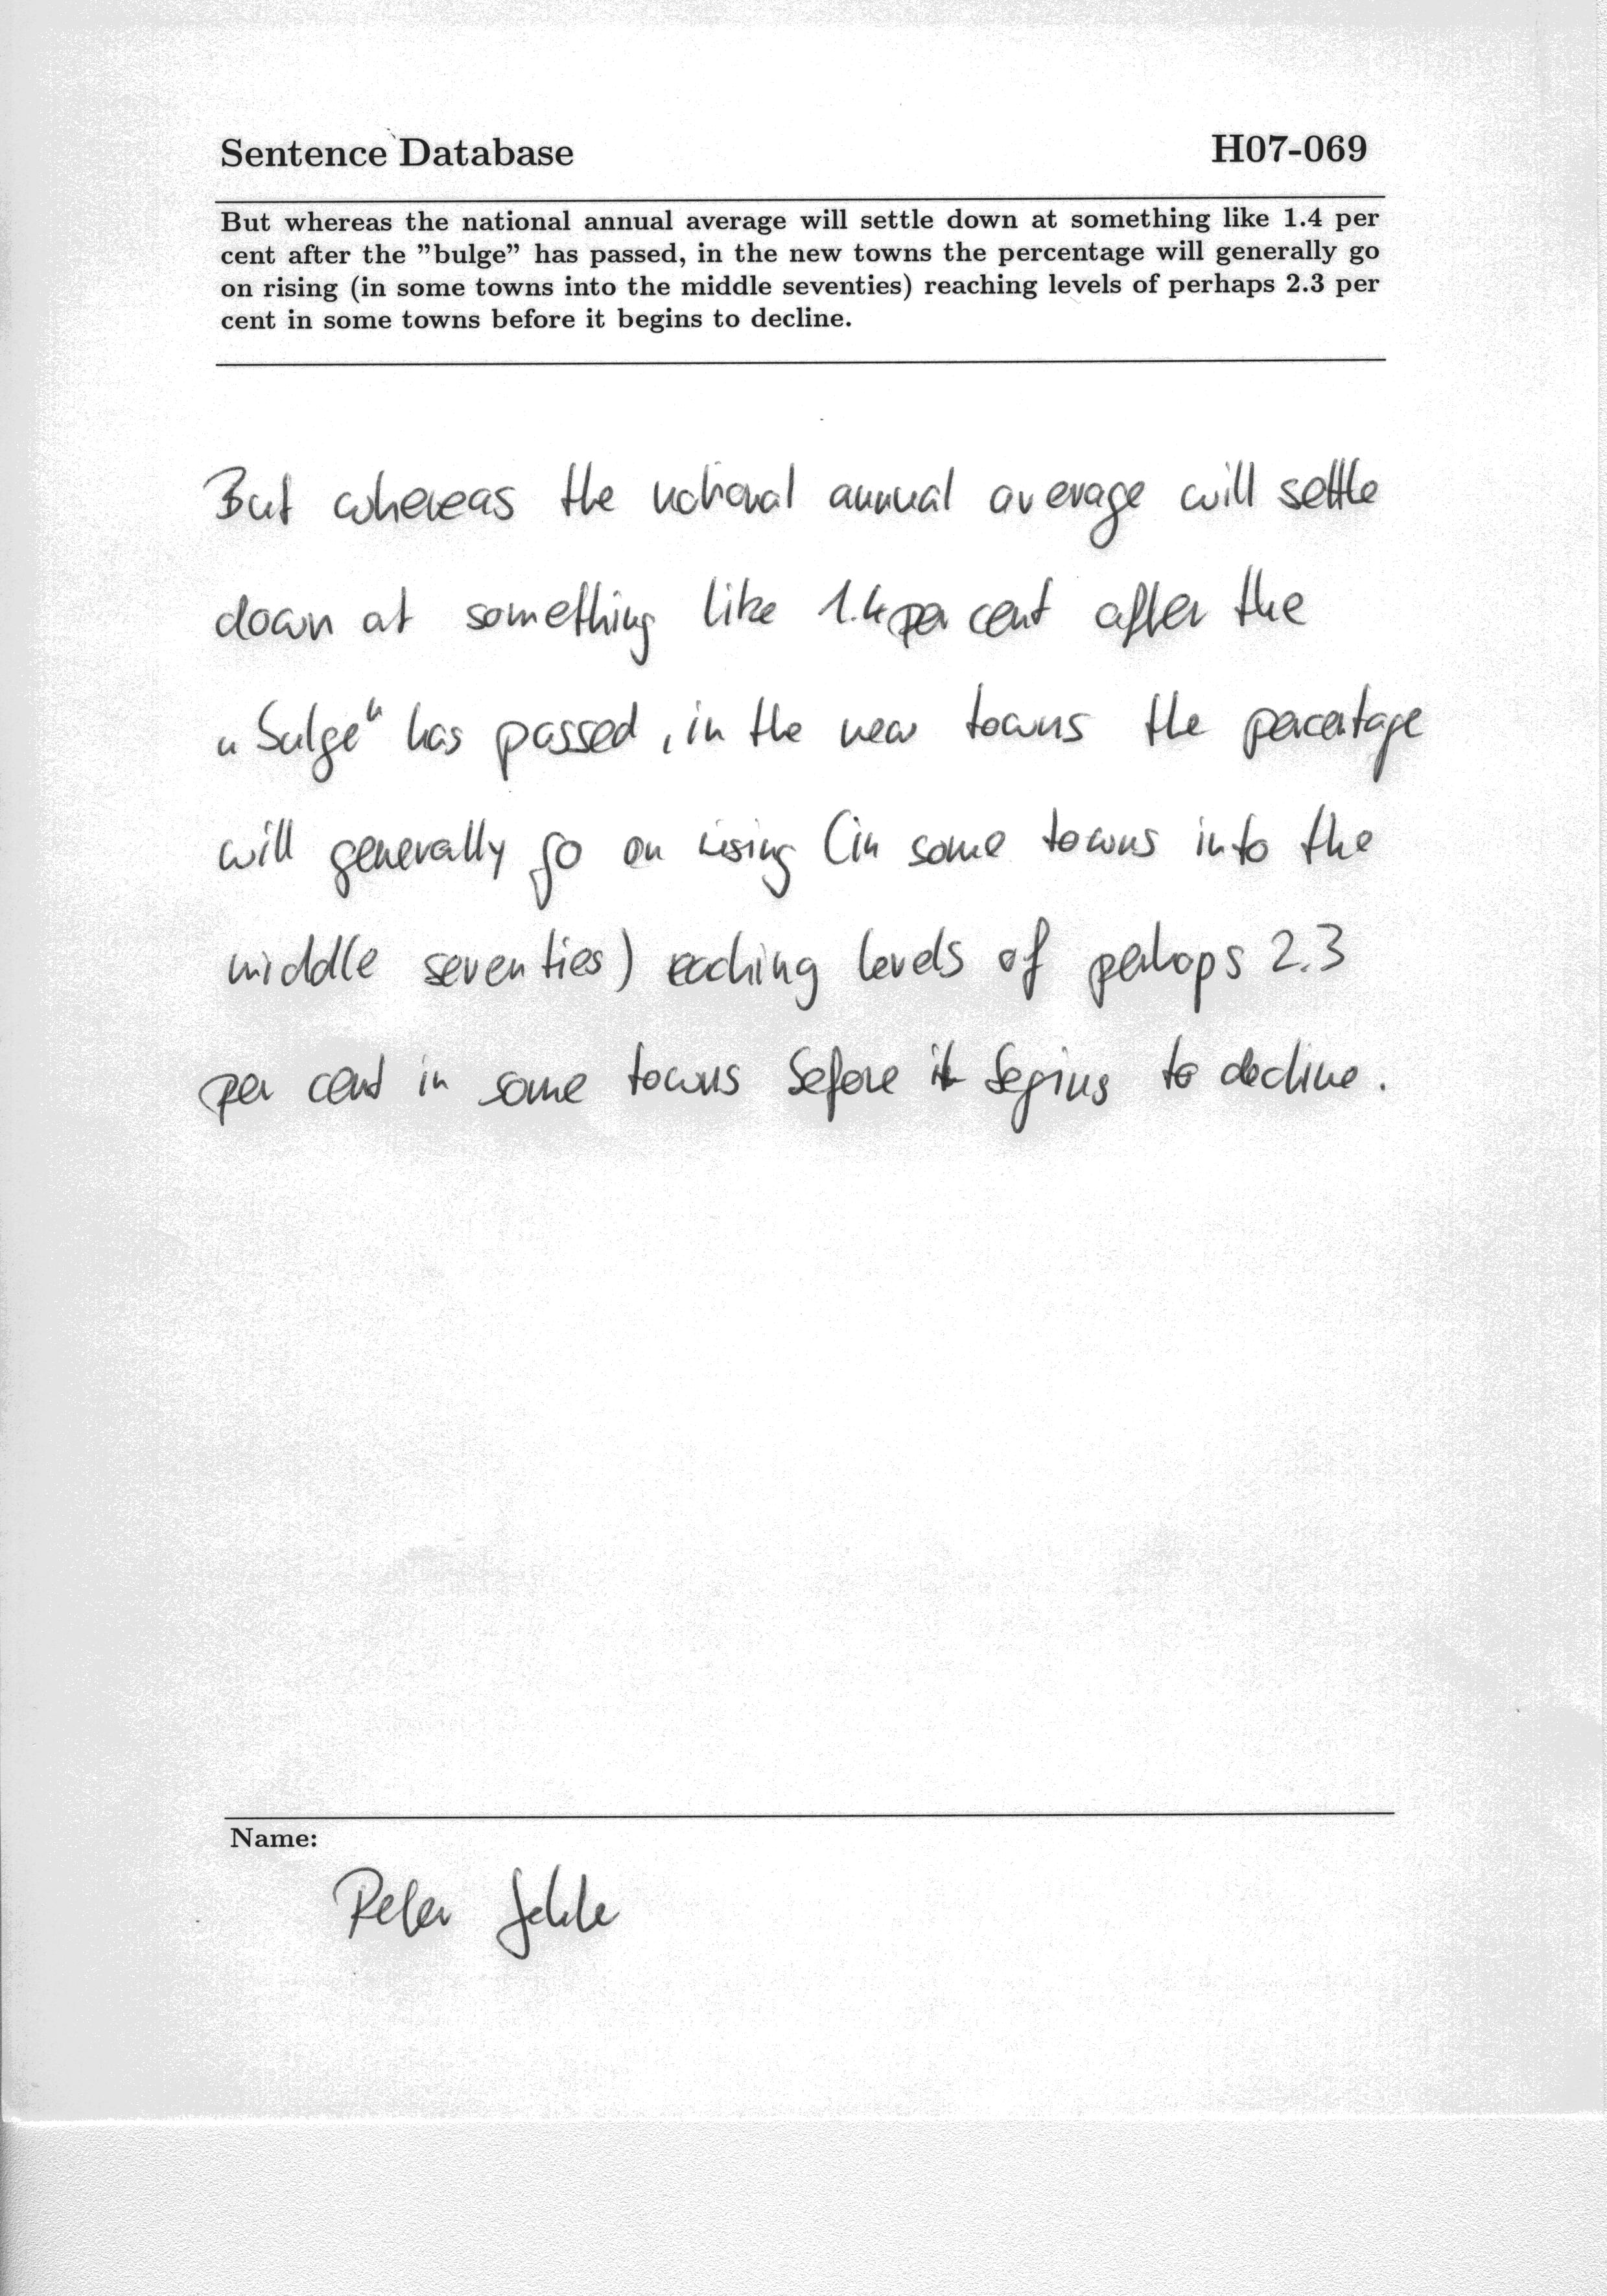 Sentence Database H07-069
But whereas the national annual average will settle down at something like 1.4 per
cent after the ”bulge” has passed, in the new towns the percentage will generally go
on rising (in some towns into the middle seventies) reaching levels of perhaps 2.3 per
cent in some towns before it begins to decline.
But whereas the national annual average will settle
down at something like 1.4 per cent after the
„bulge“ has passed, in the new towns the percentage
will generally go on rising (in some towns into the
middle seventies) reaching levels of perhaps 2.3
per cent in some towns before it begins to decline.
Name:
Peter